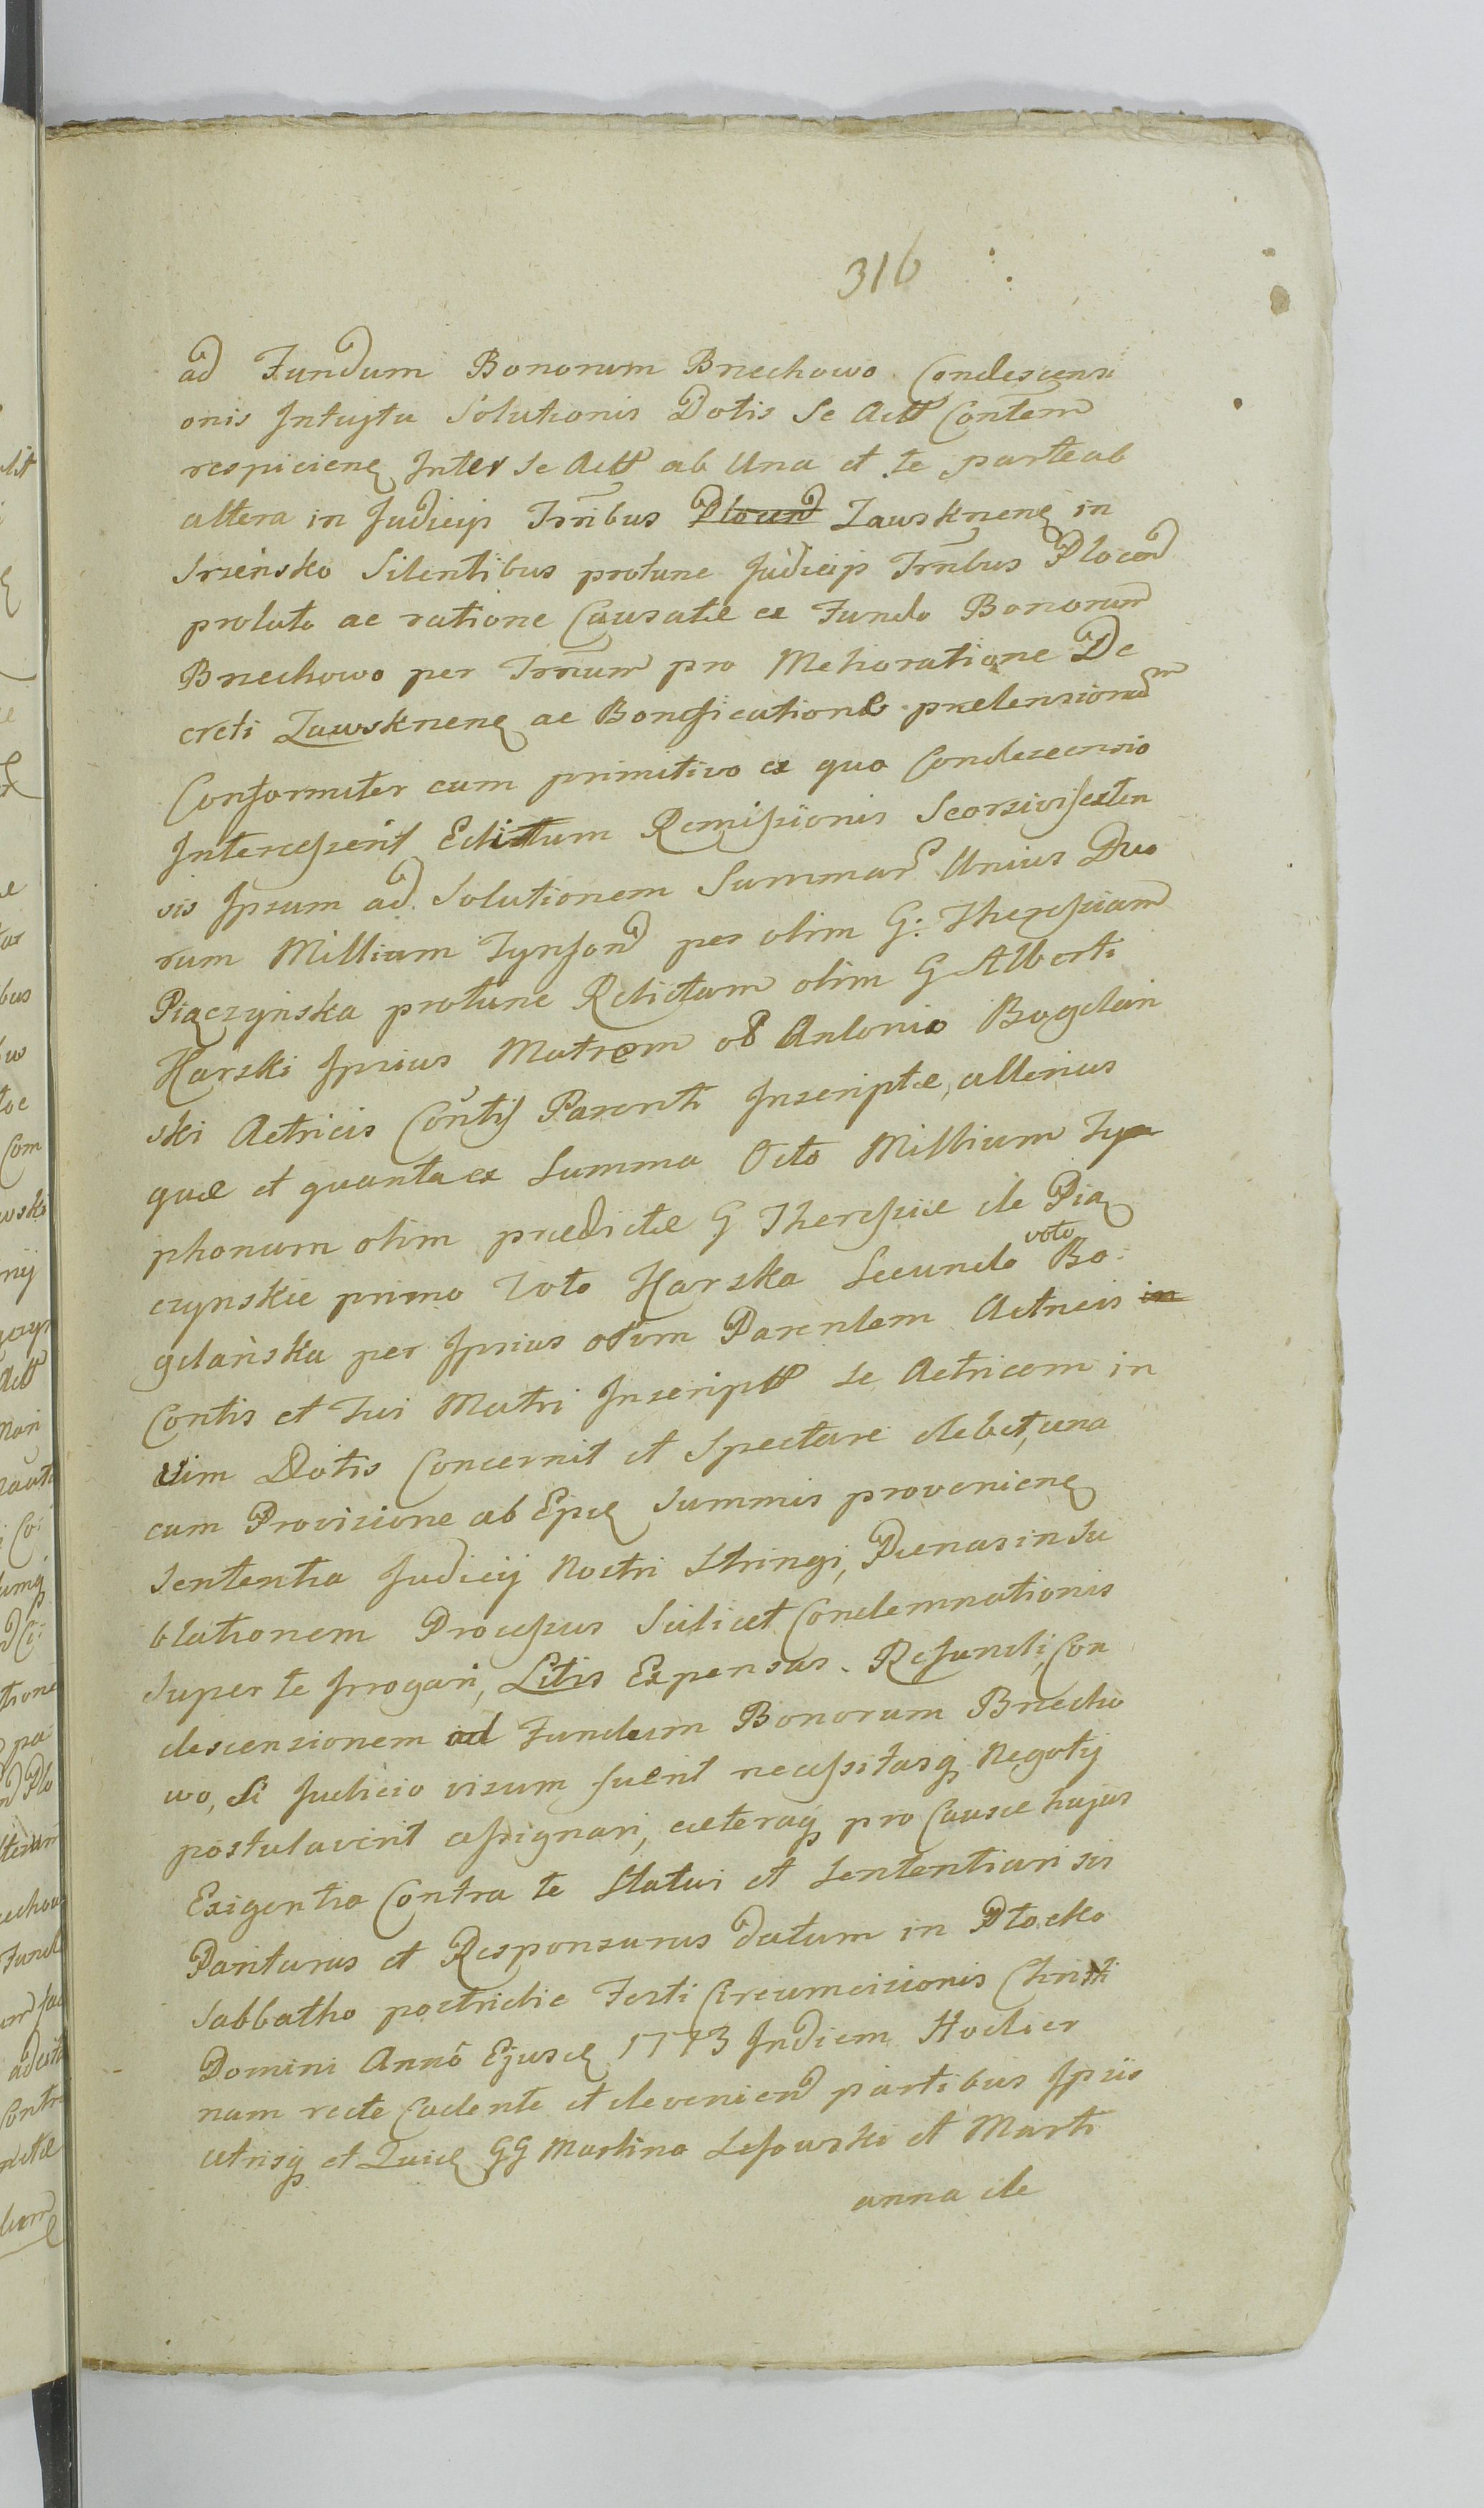 316
ad Fundum Bonorum Brzechowo Condescensi
onis Intuitu Solutionis Dotis Se Act Contem
respicienę Inter Se Act ab Una et te parte ab
altera in Judicijs Trribus Plocen Zawskrnenę in
Srzeńsko Silentibus protunc Judicijs Trribus Plocen
prolato ac ratione Causatæ ex Fundo Bonorum
Brzechowo per Trrum pro Melioratione De
creti Zawskrnenę ac Bonificatione prætensionum
Conformiter cum primitivo ex quo Condescensio
Intercesserit Edictum Remissionis Seorsivis exten
sis Ipsum ad Solutionem Summar Unius Duo
rum Millium Tynfon per olim G: Theressiam
Piączyńska protunc Relictam olim G Alberti
Harski Ipsius Matrem olim Antonio Bogdań
ski Actricis Contis Parenti Inscriptæ, alterius
quæ et quanta ex Summa Octo Millium Ty
phonum olim prædictæ G Theressiæ de Pią
czynskie primo Voto Harska Secundo voto Bo:
gdańska per Ipsius olim Parentem Actricis in
Contis et Tui Matri Inscript Se Actricem in
vim Dotis Concernit et Spectare debet, una
cum Provisione ab Ejsdę Summis provenienę
Sententia Judicij Nostri Stringi, Pænas in Su
blationem Processus Scilicet Condemnationis
Super te Irrogari, Litis Expensas. Refundi, Con
descensionem ad Fundum Bonorum Brzecho
wo, Si Judicio visum fuerit necessitasq Negotij
postulaverit assignari, cæteraq pro Causæ hujus
Exigentia Contra te Statui et Sententiari sis
Pariturus et Responsurus Datum in Płocko
Sabbatho postridie Festi Circumcisionis Christi
Domini Anno Ejusdę 1773 In diem Hodier
nam recte Cadente et devenien partibus Ipsis
utrisq et Quidę GG Martino Lessowski et Marti
anna de